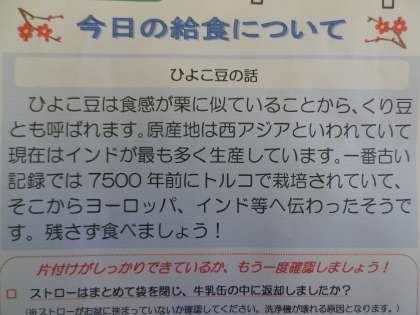 今日の給食について
ひよこ豆の話
ひよこ豆は食感が栗に似ていることから、くり豆
とも呼ばれます。原産地は西アジアといわれていて
現在はインドが最も多く生産しています。一番古い
記録では 7500 年前にトルコで栽培されていて、
そこからヨーロッパ、インド等へ伝わったそうで
す。残さず食べましょう！
片付けがしっかりできているか、もう一度確認しましょう！
□ ストローはまとめて袋を閉じ、牛乳缶の中に返却しましたか？
(※ストローがお盆に挟まっていないか確認してください。洗浄機が壊れる原因となります。)